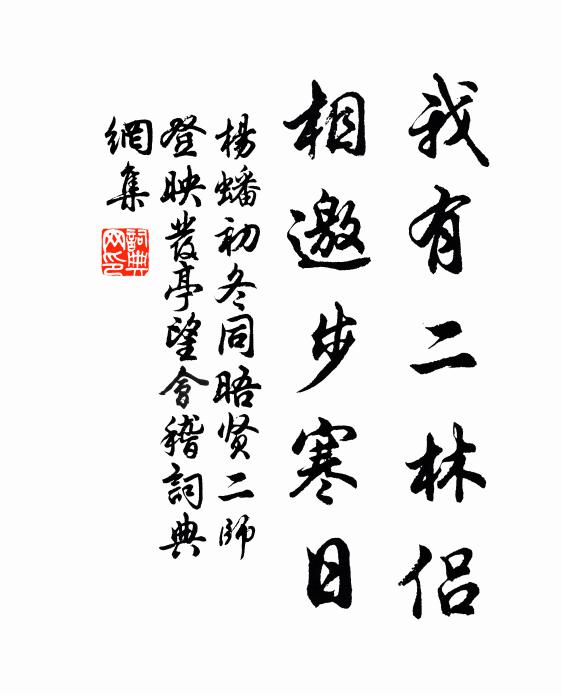 我有二林侣
相邀步寒日
楊蟠初冬同晤贤二师
登映发亭望會稽詞典
網集
詞典网印